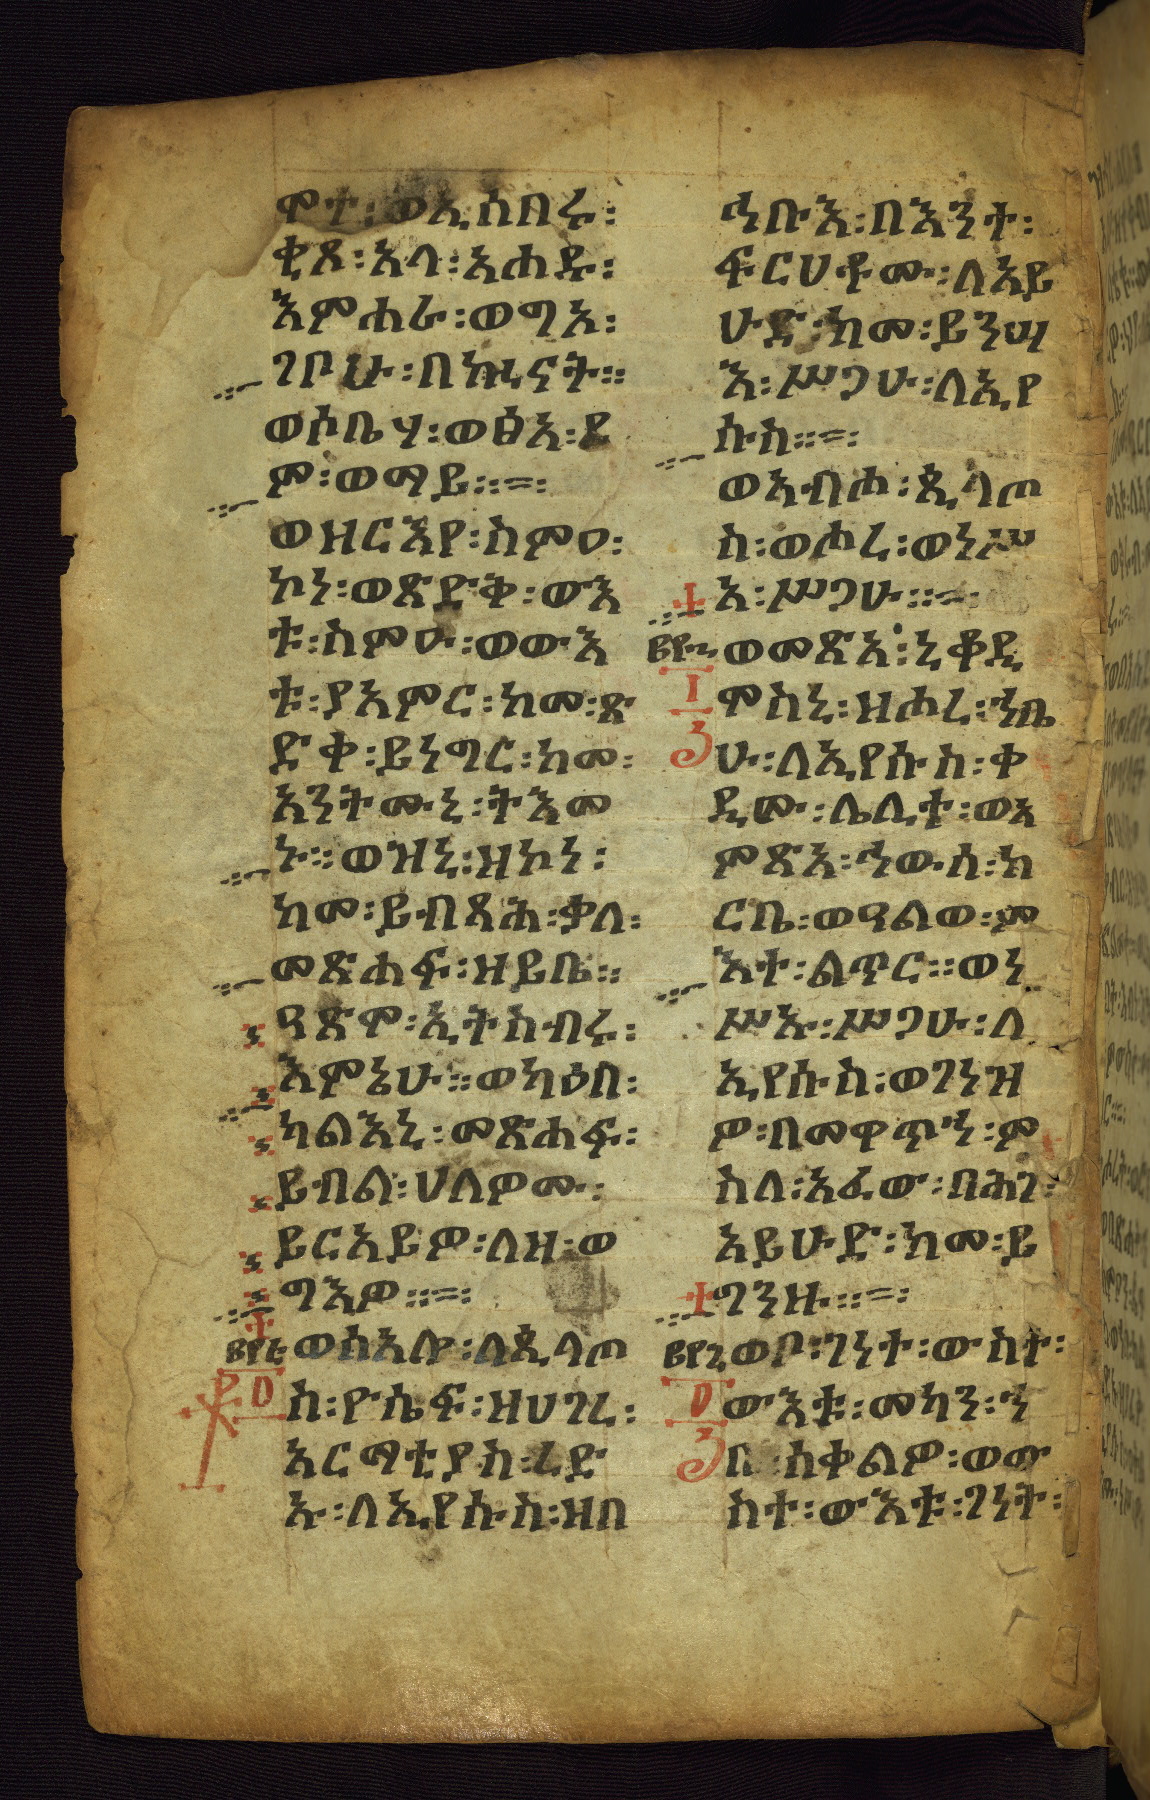 ሞተ፡ ወኢሰበሩ፡
ቂጾ፡ አላ፡ አሐዱ፡
እምሐራ፡ ወግአ፡
ገቦሁ፡ በኲናት።
ወሶቤሃ፡ ወፅአ፡ ደ
ም፡ ወማይ።=፡
ወዘርእየ፡ ስምዐ፡
ኮነ፡ ወጽድቅ፡ ውእ
ቱ፡ ስምዑ፡ ወውእ
ቱ፡ ያአምር፡ ከመ፡ ጽ
ድቀ፡ ይነግር፡ ከመ፡
አንትሙኒ፡ ትእመ
ኑ። ወዝኒ፡ ዘኮነ፡
ከመ፡ ይብጻሕ፡ ቃለ፡
መጽሐፍ፡ ዘይቤ።
ዓጽሞ፡ ኢትስብሩ፡
እምኔሁ። ወካዕበ፡
ካልእኒ፡ መጽሐፍ፡
ይብል፡ ሀለዎሙ፡
ይርአይዎ፡ ለዘ፡ ወ
ግእዎ።=፡
ወሰአሎ፡ ለጲላጦ
ስ፡ ዮሴፍ፡ ዘሀገረ፡
አርማቲያስ፡ ረድ
ኡ፡ ለኢየሱስ፡ ዘበ
ኅቡእ፡ በእንተ፡
ፍርሀቶሙ፡ ለአይ
ሁድ፡ ከመ፡ ይንሣ
እ፡ ሥጋሁ፡ ለኢየ
ሱስ።=፡
ወአብሐ፡ ጲላጦ
ስ፡ ወሖረ፡ ወነሥ
አ፡ ሥጋሁ።=፡
ወመጽአ፡ ኒቆዲ
ሞስኒ፡ ዘሖረ፡ ኀቤ
ሁ፡ ለኢየሱስ፡ ቀ
ዲሙ፡ ሌሊተ፡ ወአ
ምጽአ፡ ኀውሰ፡ ከ
ርቤ፡ ወዓልወ፡ ም
እተ፡ ልጥር። ወነ
ሥኡ፡ ሥጋሁ፡ ለ
ኢየሱስ፡ ወገነዝ
ዎ፡ በመዋጥኅ፡ ም
ስለ፡ አፈው፡ በሕገ፡
አይሁድ፡ ከመ፡ ይ
ግንዙ።=፡
ወቦ፡ ገነተ፡ ውስተ፡
ውእቱ፡ መካን፡ ኀ
በ ሰቀልዎ፡ ወው
ስተ፡ ውእቱ፡ ገነት፡